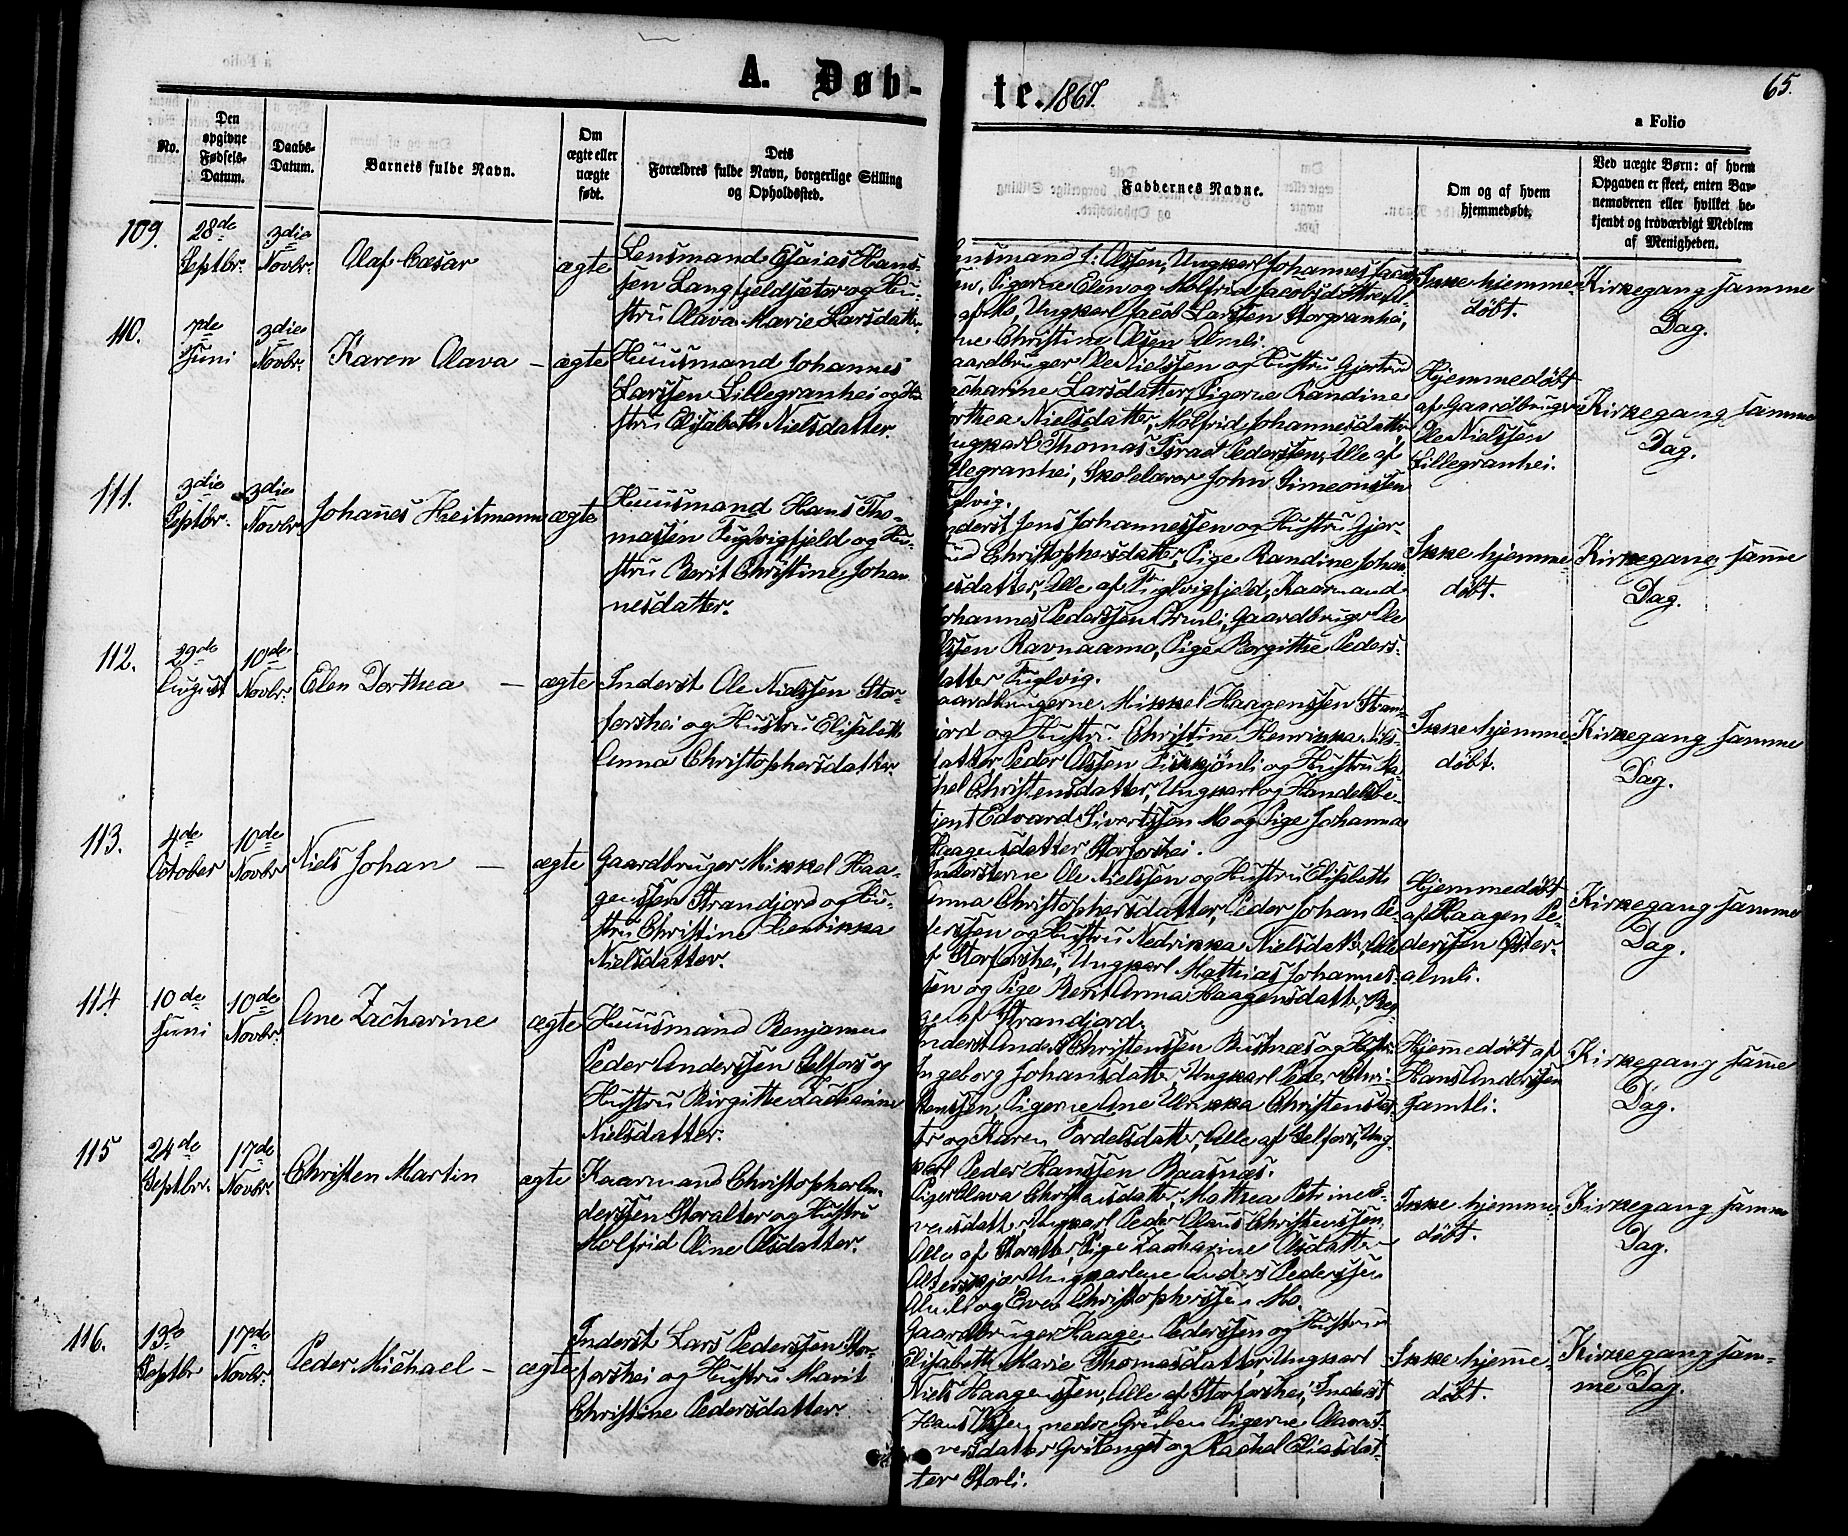 A. Døb-
te. 1867.
65.
a Folio
No.
Den
opgivne
Fødsels-
Datum.
Daabs-
Datum.
Barnets fulde Navn.
Om
ægte eller
uægte
født.
Dets
Forældres fulde Navn, borgerlige Stilling
og Opholdssted.
Faddernes Navne.
Om og af hvem
hjemmedøbt.
Ved uægte Børn: af hvem
Opgaven er skeet, enten Bar-
nemoderen eller hvilket be-
kjendt og troværdigt Medlem
af Menigheden.
109.
28de
Septbr.
3die
Novbr.
Olaf Cæsar
ægte
Lensmand Esaias Hans-
sen Langfjeldsæter og Hu-
stru Olava Marie Larsdatter
Olssen, Ungkarl Johannes
Pigerne Elen og Molfrid Jacobsdøttre
af Mo, Ungkarl Jacob Larssen Storgranhei,
Christine Olsen Almli.
Ikke hjemme-
døbt.
Kirkegang samme
Dag.
110.
7de
Juni
3die
Novbr.
Karen Olava –
ægte
Huusmand Johannes
Larssen Lillegranhei og Hu-
stru Elisabeth Nielsdatter.
aardbruger Ole Nielssen og Hustru Gjertru
acharine Larsdatter, Pigerne Randine
orthea Nielsdatter, Molfrid Johannesdatter
ungkarl Thomas Israel Pederssen, Alle af
illegranhei, Skolelærer John Simeonssen
uglvig.
Hjemmedøbt
af Gaardbruger
Ole Nielssen
Lillegranhei.
Kirkegang samme
Dag.
111.
3die
Septbr.
3die
Novbr.
Johannes Heitmann
ægte
Huusmand Hans Tho-
massen Fuglvigfjeld og Hu-
stru Berit Christine Johan-
nesdatter.
nderst Jens Johannessen og Hustru Gjer-
ud Christophersdatter, Pige Randine Johan
esdatter, Alle af Fuglvigfjeld, Kaarmand
Johannes Pederssen Almli, Gaardbruger Ole
lssen Ravnaamo, Pige Borgithe Peders-
datter Fuglvig.
Ikke hjemme-
døbt.
Kirkegang samme
Dag.
112.
29de
August
10de
Novbr.
Elen Dorthea –
ægte
Inderst Ole Nielssen Stor-
forshei og Hustru Elisabeth
Anna Christophersdatter.
aardbrugerne Mikkel Haagenssen Stran-
jord og Hustru Christine Henrikka Niels-
datter Peder Olssen og Hustru Ra-
chel Christensdatter, Ungkarl og Handelsbe-
tjent Edvard Sivertssen Mo og Pige Johanna
Haagensdatter Storforshei.
Ikke hjemme-
døbt.
Kirkegang samme
Dag.
113.
4de
October
10de
Novbr.
Niels Johan –
ægte
Gaardbruger Mikkel Haa-
genssen Strandjord og Hu-
stru Christine Henrikka
Nielsdatter.
Inderstene Ole Nielssen og Hustru Elisabeth
Anna Christophersdatter, Peder Johan Pe-
derssen og Hustru Nedrikka Nielsdatter, Alle
af Storforshei, Ungkarl Mathias Johannes-
sen og Pige Berit Anna Haagensdatter, Beg-
ge af Strandjord.
Hjemmedøbt
af Haagen Pe-
derssen Øster-
almli.
Kirkegang samme
Dag.
114
10de
Juni
10de
Novbr.
Ane Zacharine
ægte
Huusmand Benjamin
Peder Anderssen Selfors og
Hustru Birgitte Zacharine
Nielsdatter.
Inderst Anders Christenssen Bustnæs og Hustru
Ingeborg Johansdatter, Ungkarl Peder Chri-
stenssen, Pigerne Ane Ulrikka Christensdat-
ter og Karen Tordelsdatter, Alle af Selfors, Ung-
karl Peder Hanssen Baasnæs.
Hjemmedøbt af
Hans Anderssen
Jamtli.
Kirkegang samme
Dag.
115
24de
Septbr.
17de
Novbr.
Christen Martin
ægte
Kaarmand Christopher An-
derssen Storalter og Hustru
Molfrid Oline Olsdatter.
Piger Olava Christiansdatter, Mathea Petrine
vensdatter, Ungkarl Peder Olaus Christenssen,
Alle af Storalter, Pige Zacharine Olsdatter
Ungkarlene Anders Pederssen
Almli og Even Christopherssen Mo.
Ikke hjemme-
døbt.
Kirkegang samme
Dag.
116.
13de
Septbr
17de
Novbr.
Peder Michael –
ægte
Inderst Lars Pederssen Stor-
forshei og Hustru Marit
Christine Pedersdatter.
Gaardbruger Haagen Pederssen og Hustru
Elisabeth Marie Thomasdatter, Ungkarl
Niels Haagenssen, Alle af Storforshei, Inderst
Hans Olssen nedre Gruben Pigerne Olava
versdatter og Rachel Eliasdat-
ter Storli.
Ikke hjemme-
døbt.
Kirkegang sam-
me Dag.